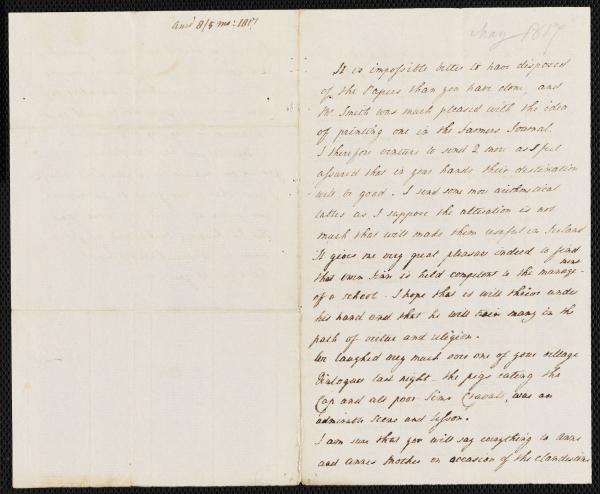 ansd 8/5 mo: 1817
May 1817
It is impossible better to have disposed
of the Papers than you have done, and
Mr. Smith was much pleased with the idea
of printing one in the Farmers Journal.
I therefore venture to send 2 more as I feel
assured that in your hands their destination
will be good. I send some more arithmetical
tables as I suppose the alteration is not
much that will made them useful in Ireland
It gives me very great pleasure indeed to find
that Owen Finn is held competent to the manage-
ment
of a school. I hope that it will thrive under
his hand and that he will train many in the
path of virtue and religion.
We laughed very much over one of your village
Dialogues last night - the pigs eating the
Cap and all poor Tims Cravats, was an
admirable scene and lesson.
I am sure that you will say everything to Anne
and Annes Mother on occasion of the clandestine